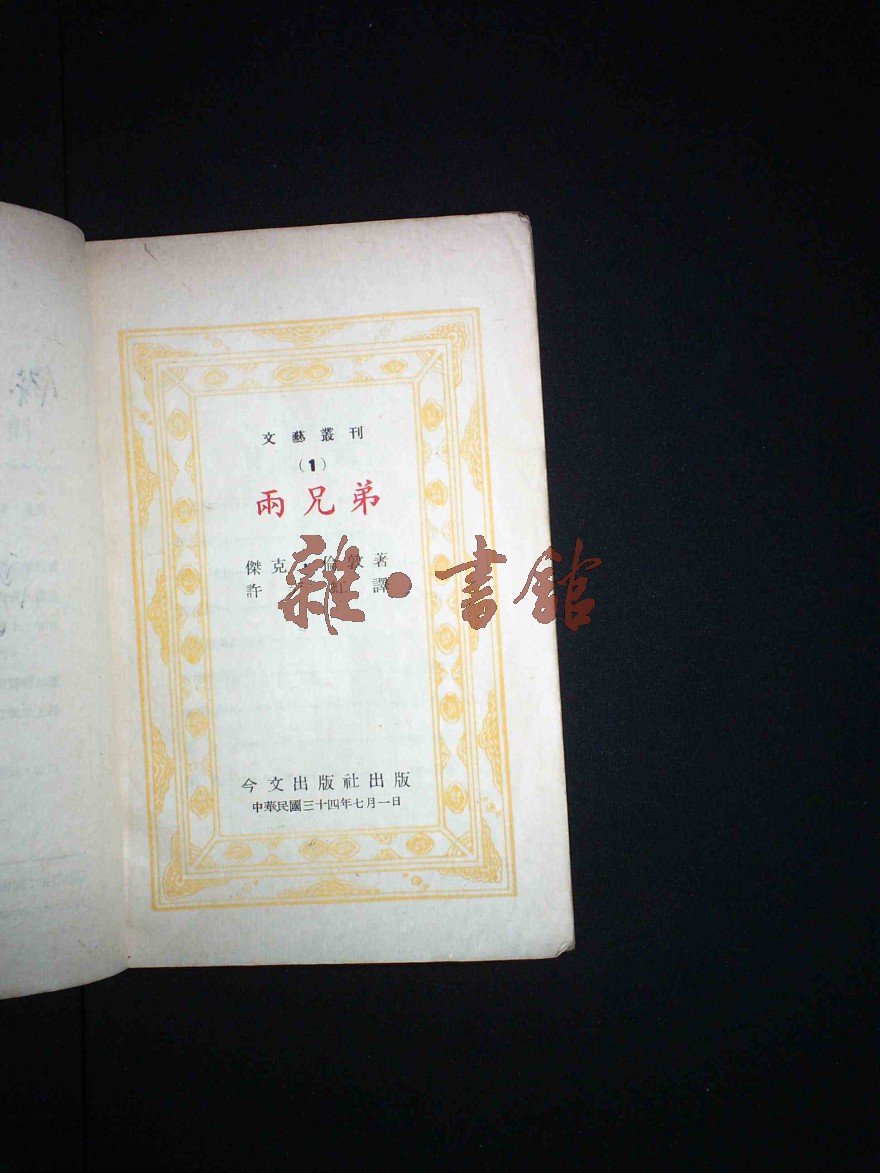 文藝叢刊
(1)
兩兄弟
傑克·倫敦著
許 虹 譯
雜·書館
今文出版社出版
中華民國三十四年七月一日